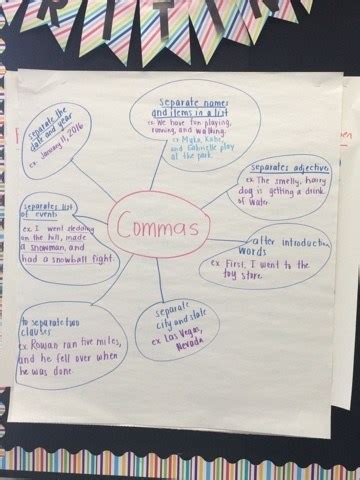 RITIN
separate names
and items in a list
ex. We have fun playing,
running, and walking.
ex Myka, Kobi,
and Gabrielle play
at the park.
separate the
date and year
ex. January 11, 2016
separates adjective
ex. The smelly, hairy
dog is getting a drink
of water.
separates list
of events
ex. I went sledding
on the hill, made
a snowman, and
had a snowball fight.
Commas
after introduction
words
ex. First, I went to the
toy store.
separate
city and state
ex Las Vegas,
Nevada
to separate two
clauses
ex. Rowan ran five miles,
and he fell over when
he was done.